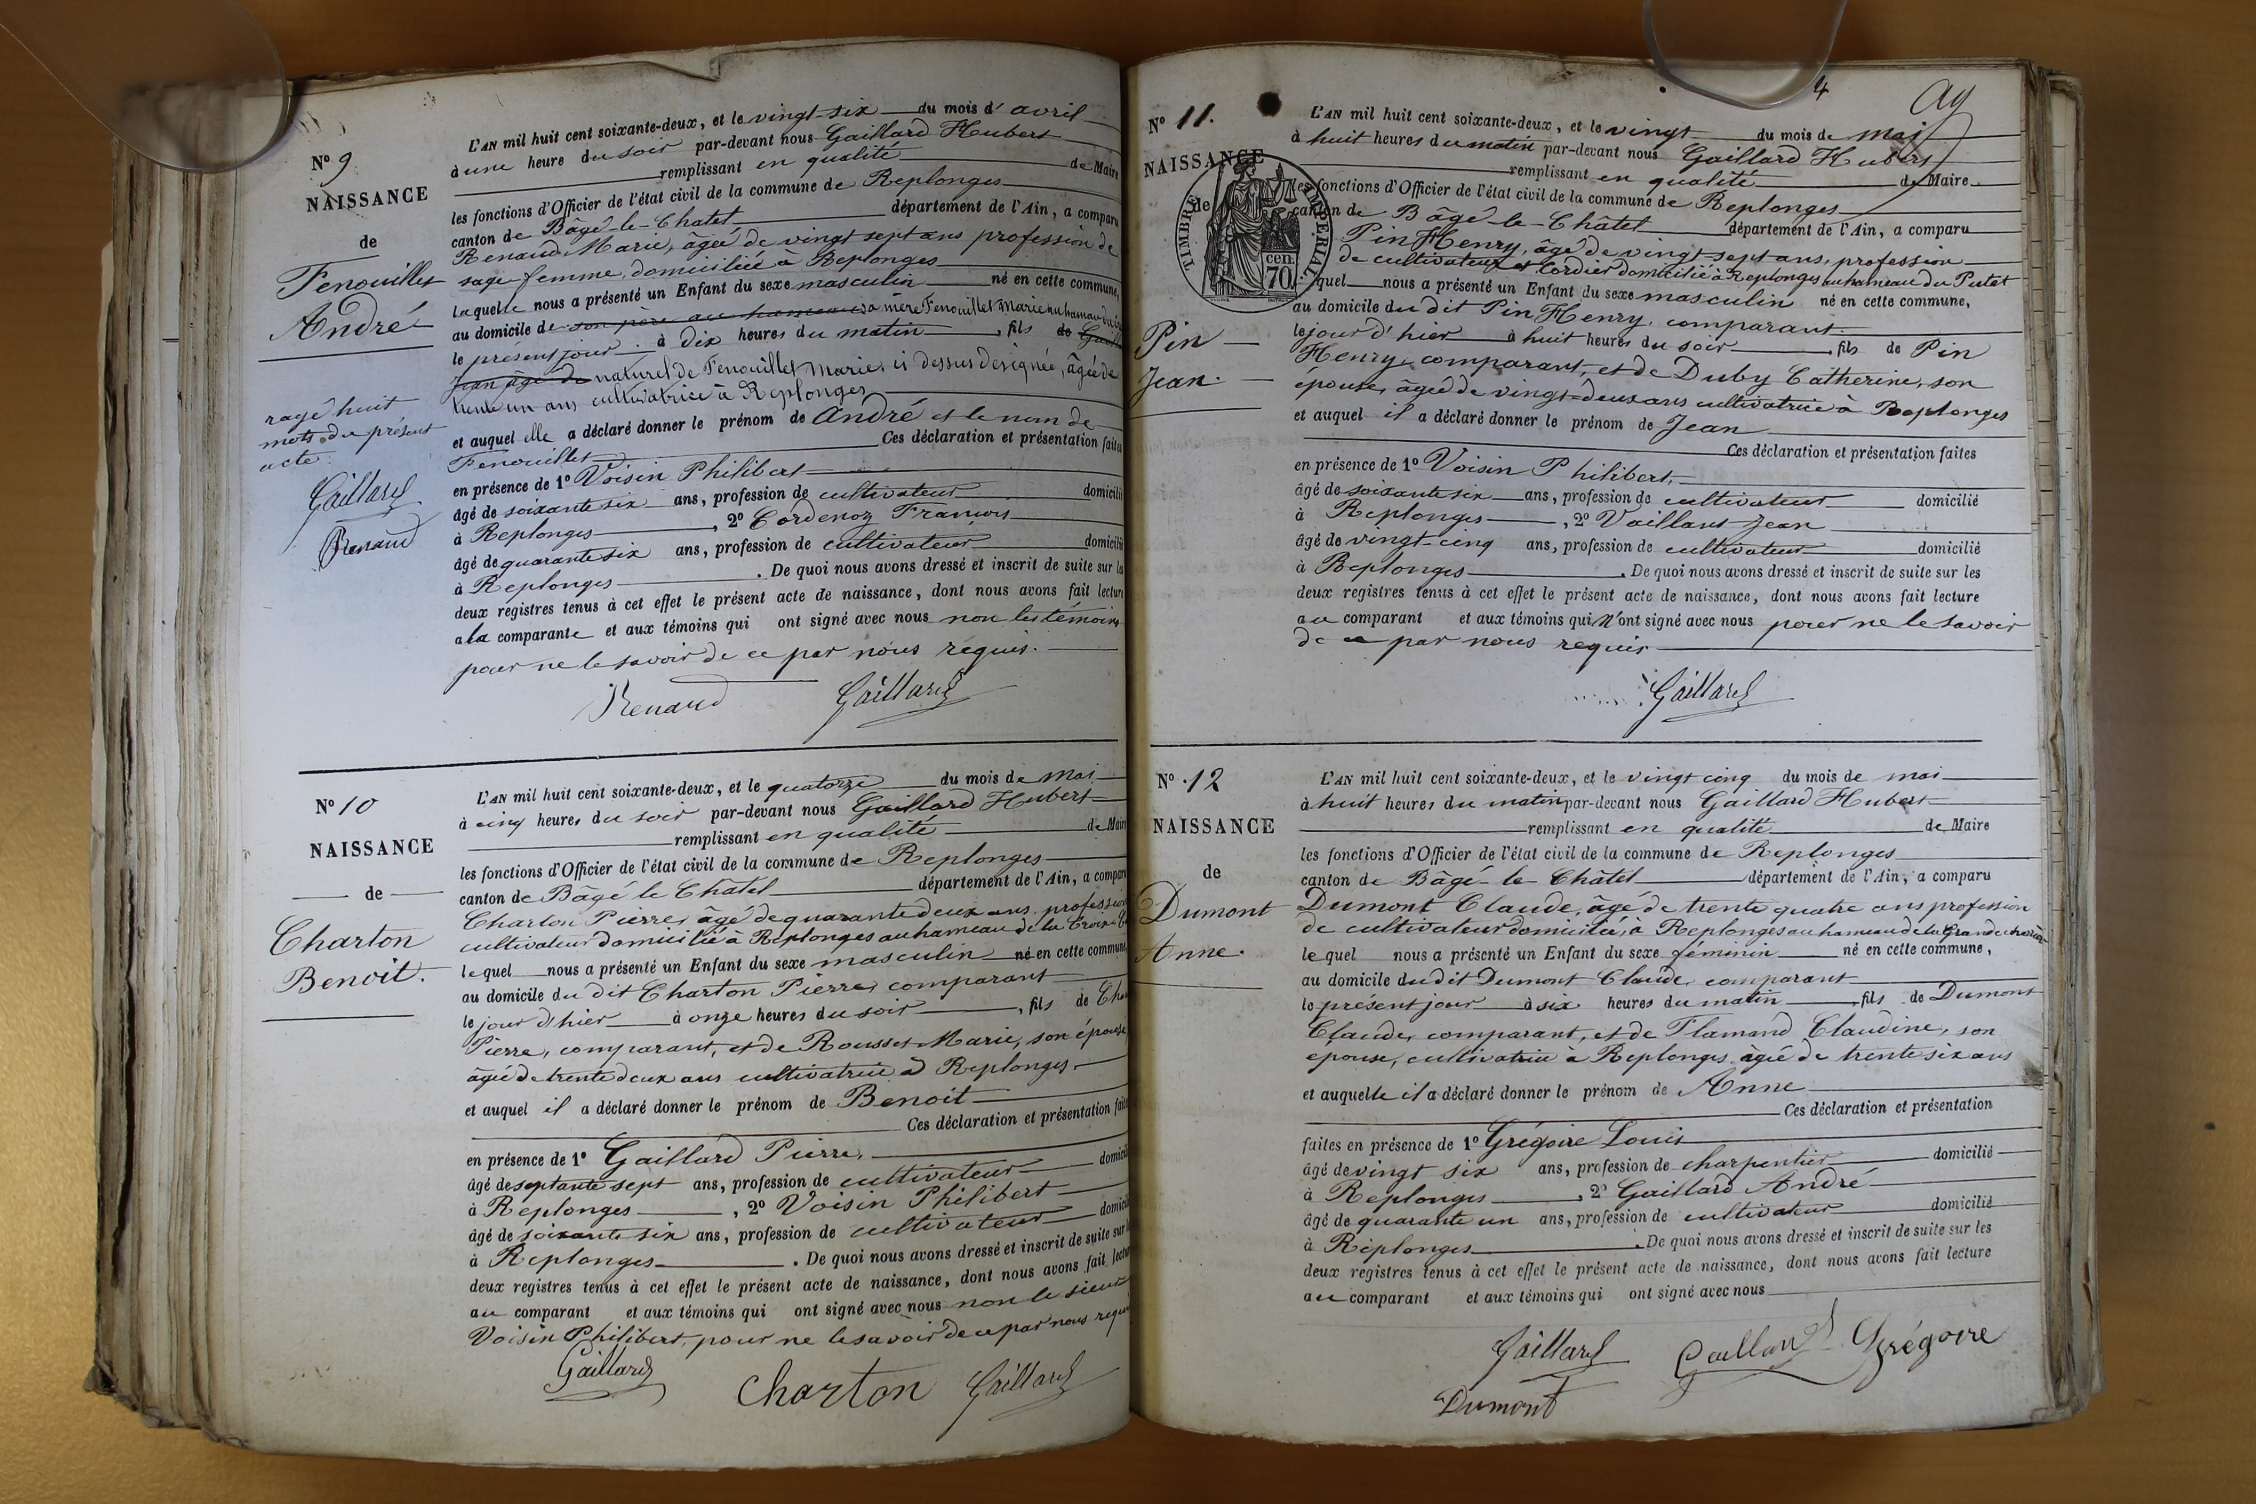 N° 9
NAISSANCE
de
Fenouillet
André
rayé huit
mots du présent
acte.
Gaillard
Renaud
L'AN mil huit cent soixante-deux, et le vingt-six du mois d'avril
à une heure du soir par-devant nous Gaillard Hubert
remplissant en qualité de Maire
les fonctions d'Officier de l'état civil de la commune de Replonges
canton de Bâgé-le-Chatel département de l'Ain, a comparu
Renaud Marie, âgée de vingt sept ans profession de
sage femme, domiciliée à Replonges
laquelle nous a présenté un Enfant du sexe masculin né en cette commune,
au domicile de son père au hameau sa mère Fenouillet Marie au hameau
le présent jour à dix heures du matin, fils de
Jean âgé de naturel de Fenouillet Marie, ci dessus designée, âgée de
trente un ans cultivatrice à Replonges
et auquel elle a déclaré donner le prénom de André et le nom de
Fenouillet Ces déclaration et présentation faites
en présence de 1° Voisin Philibert
âgé de soixante six ans, profession de cultivateur domicilié
à Replonges, 2° Cordenoz François
âgé de quarante six ans, profession de cultivateur domicilié
à Replonges. De quoi nous avons dressé et inscrit de suite sur les
deux registres tenus à cet effet le présent acte de naissance, dont nous avons fait lecture
a la comparante et aux témoins qui ont signé avec nous non les témoins
pour ne le savoir de ce par nous réquis.
Renaud Gaillard
N° 10
NAISSANCE
de
Charton
Benoit.
L'AN mil huit cent soixante-deux, et le quatorze du mois de mai
à cinq heures du soir par-devant nous Gaillard Hubert
remplissant en qualité de Maire
les fonctions d'Officier de l'état civil de la commune de Replonges
canton de Bâgé le Châtel département de l'Ain, a comparu
Charton Pierre, âgé de quarante deux ans profession
cultivateur domicilié à Replonges au hameau de la Croix
lequel nous a présenté un Enfant du sexe masculin né en cette commune
au domicile du dit Charton Pierre, comparant
le jour d'hier à onze heures du soir, fils de Char
Pierre, comparant, et de Rousset Marie, son épouse
âgée de trente deux ans cultivatrice à Replonges
et auquel il a déclaré donner le prénom de Benoit
Ces déclaration et présentation faites
en présence de 1° Gaillard Pierre,
âgé de septante sept ans, profession de cultivateur domicilié
à Replonges, 2° Voisin Philibert
âgé de soixante six ans, profession de cultivateur domicilié
à Replonges. De quoi nous avons dressé et inscrit de suite sur
deux registres tenus à cet effet le présent acte de naissance, dont nous avons fait lecture
au comparant et aux témoins qui ont signé avec nous non le sieur
Voisin Philibert, pour ne le savoir de ce par nous requis
Gaillard Charton Gaillard
4
N° 11.
NAISSANCE
de
TIMBRE IMPÉRIAL
70 cen.
Pin
Jean.
L'AN mil huit cent soixante-deux, et le vingt du mois de mai
à huit heures du matin par-devant nous Gaillard Hubert
remplissant en qualité de Maire
les fonctions d'Officier de l'état civil de la commune de Replonges
canton de Bâgé-le-Châtel département de l'Ain, a comparu
Pin Henry, âgé de vingt-sept ans, profession
de cultivateur et Cordier domicilié à Replonges, au hameau du Putet
lequel nous a présenté un Enfant du sexe masculin né en cette commune,
au domicile du dit Pin Henry, comparant.
le jour d'hier à huit heures du soir, fils de Pin
Henry, comparant, et de Duby Catherine, son
épouse, âgée de vingt-deux ans cultivatrice à Replonges
et auquel il a déclaré donner le prénom de Jean
Ces déclaration et présentation faites
en présence de 1° Voisin Philibert,
âgé de soixante six ans, profession de cultivateur domicilié
à Replonges, 2° Vaillant Jean
âgé de vingt-cinq ans, profession de cultivateur domicilié
à Replonges. De quoi nous avons dressé et inscrit de suite sur les
deux registres tenus à cet effet le présent acte de naissance, dont nous avons fait lecture
au comparant et aux témoins qui n'ont signé avec nous pour ne le savoir
de ce par nous requis
Gaillard
N° 12
NAISSANCE
de
Dumont
Anne.
L'AN mil huit cent soixante-deux, et le vingt cinq du mois de mai
à huit heures du matin par-devant nous Gaillard Hubert
remplissant en qualité de Maire
les fonctions d'Officier de l'état civil de la commune de Replonges
canton de Bâgé-le-Châtel département de l'Ain, a comparu
Dumont Claude, âgé de trente quatre ans profession
de cultivateur domicilié, à Replonges au hameau de la Grande charrière
lequel nous a présenté un Enfant du sexe féminin né en cette commune,
au domicile du dit Dumont Claude, comparant
le présent jour à six heures du matin, fils de Dumont
Claude, comparant, et de Flamand Claudine, son
épouse, cultivatrice à Replonges âgée de trente six ans
et auquelle il a déclaré donner le prénom de Anne
Ces déclaration et présentation
faites en présence de 1° Grégoire Louis
âgé de vingt six ans, profession de charpentier domicilié
à Replonges, 2° Gaillard André
âgé de quarante un ans, profession de cultivateur domicilié
à Replonges. De quoi nous avons dressé et inscrit de suite sur les
deux registres tenus à cet effet le présent acte de naissance, dont nous avons fait lecture
au comparant et aux témoins qui ont signé avec nous
Gaillard Gaillard Grégoire
Dumont